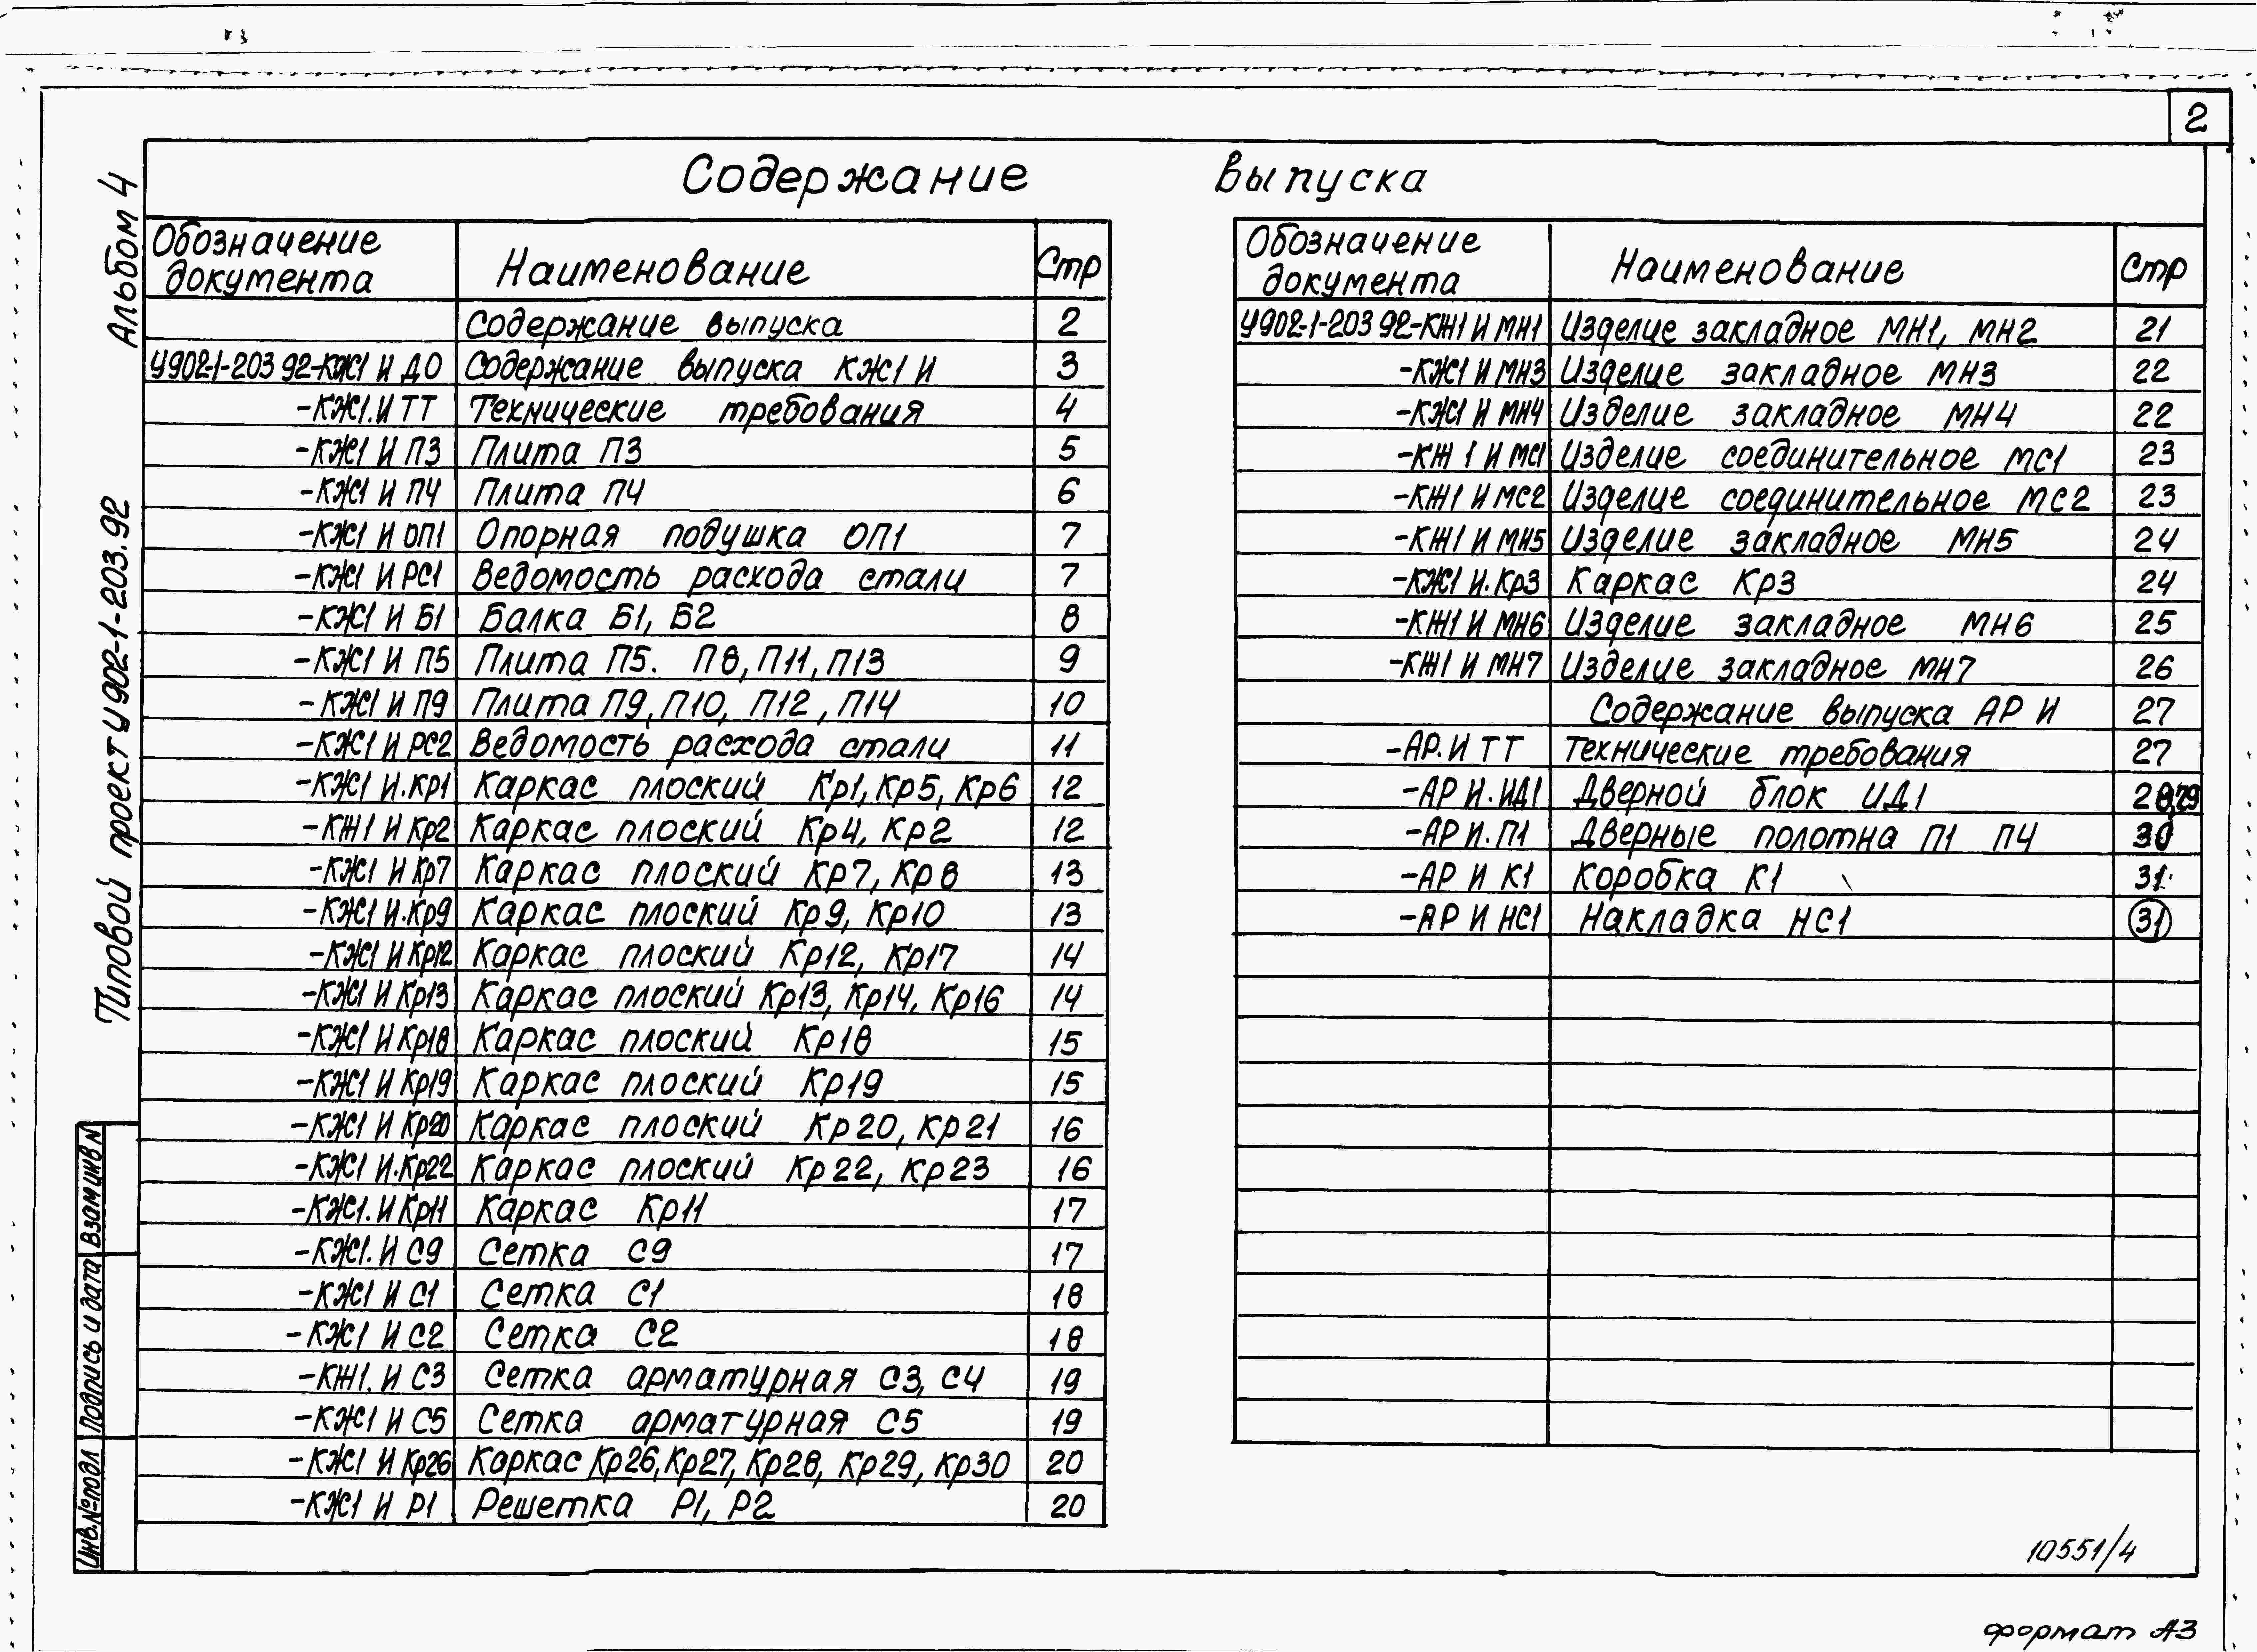 2
Содержание выпуска
Альбом 4
Типовой проект У902-1-203.92
Обозначение документа Наименование Стр
Содержание выпуска 2
У902-1-203 92-КЖ1 И ДО Содержание выпуска КЖ1 И 3
-КЖ1.И ТТ Технические требования 4
-КЖ1 И П3 Плита П3 5
-КЖ1 И П4 Плита П4 6
-КЖ1 И ОП1 Опорная подушка ОП1 7
-КЖ1 И РС1 Ведомость расхода стали 7
-КЖ1 И Б1 Балка Б1, Б2 8
-КЖ1 И П5 Плита П5. П8, П11, П13 9
-КЖ1 И П9 Плита П9, П10, П12, П14 10
-КЖ1 И РС2 Ведомость расхода стали 11
-КЖ1 И.Кр1 Каркас плоский Кр1, Кр5, Кр6 12
-КЖ1 И Кр2 Каркас плоский Кр4, Кр2 12
-КЖ1 И Кр7 Каркас плоский Кр7, Кр8 13
-КЖ1 И.Кр9 Каркас плоский Кр9, Кр10 13
-КЖ1 И Кр12 Каркас плоский Кр12, Кр17 14
-КЖ1 И Кр13 Каркас плоский Кр13, Кр14, Кр16 14
-КЖ1 И Кр18 Каркас плоский Кр18 15
-КЖ1 И Кр19 Каркас плоский Кр19 15
-КЖ1 И Кр20 Каркас плоский Кр20, Кр21 16
-КЖ1 И.Кр22 Каркас плоский Кр22, Кр23 16
-КЖ1. И Кр11 Каркас Кр11 17
-КЖ1. И С9 Сетка С9 17
-КЖ1 И С1 Сетка С1 18
-КЖ1 И С2 Сетка С2 18
-КЖ1. И С3 Сетка арматурная С3, С4 19
-КЖ1 И С5 Сетка арматурная С5 19
-КЖ1 И Кр26 Каркас Кр26, Кр27, Кр28, Кр29, Кр30 20
-КЖ1 И Р1 Решетка Р1, Р2 20
Обозначение документа Наименование Стр
У902-1-203 92-КЖ1 И МН1 Изделие закладное МН1, МН2 21
-КЖ1 И МН3 Изделие закладное МН3 22
-КЖ1 И МН4 Изделие закладное МН4 22
-КЖ 1 И МС1 Изделие соединительное МС1 23
-КЖ1 И МС2 Изделие соединительное МС2 23
-КЖ1 И МН5 Изделие закладное МН5 24
-КЖ1 И.Кр3 Каркас Кр3 24
-КЖ1 И МН6 Изделие закладное МН6 25
-КЖ1 И МН7 Изделие закладное МН7 26
Содержание выпуска АР И 27
-АР.И ТТ Технические требования 27
-АР И.ИД1 Дверной блок ИД1 28,29
-АР И.П1 Дверные полотна П1 П4 30
-АР И К1 Коробка К1 31
-АР И НС1 Накладка НС1 31
Взам инв N
Подпись и дата
Инв.№подл
10551/4
формат А3